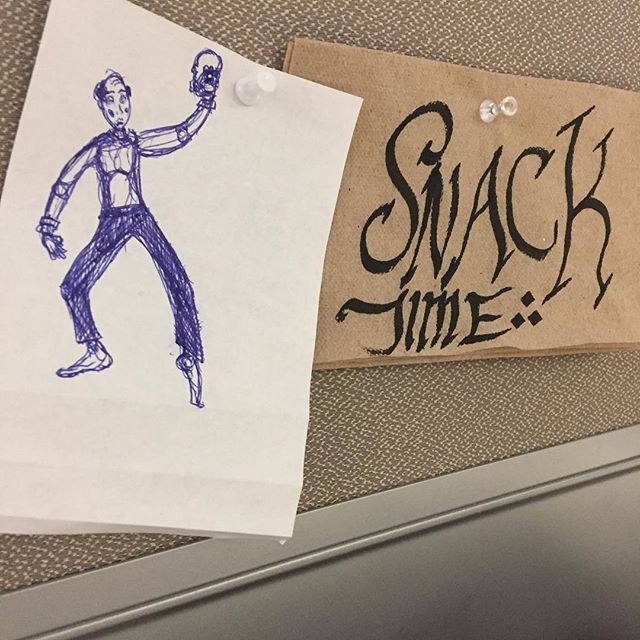 SNACK
TIME